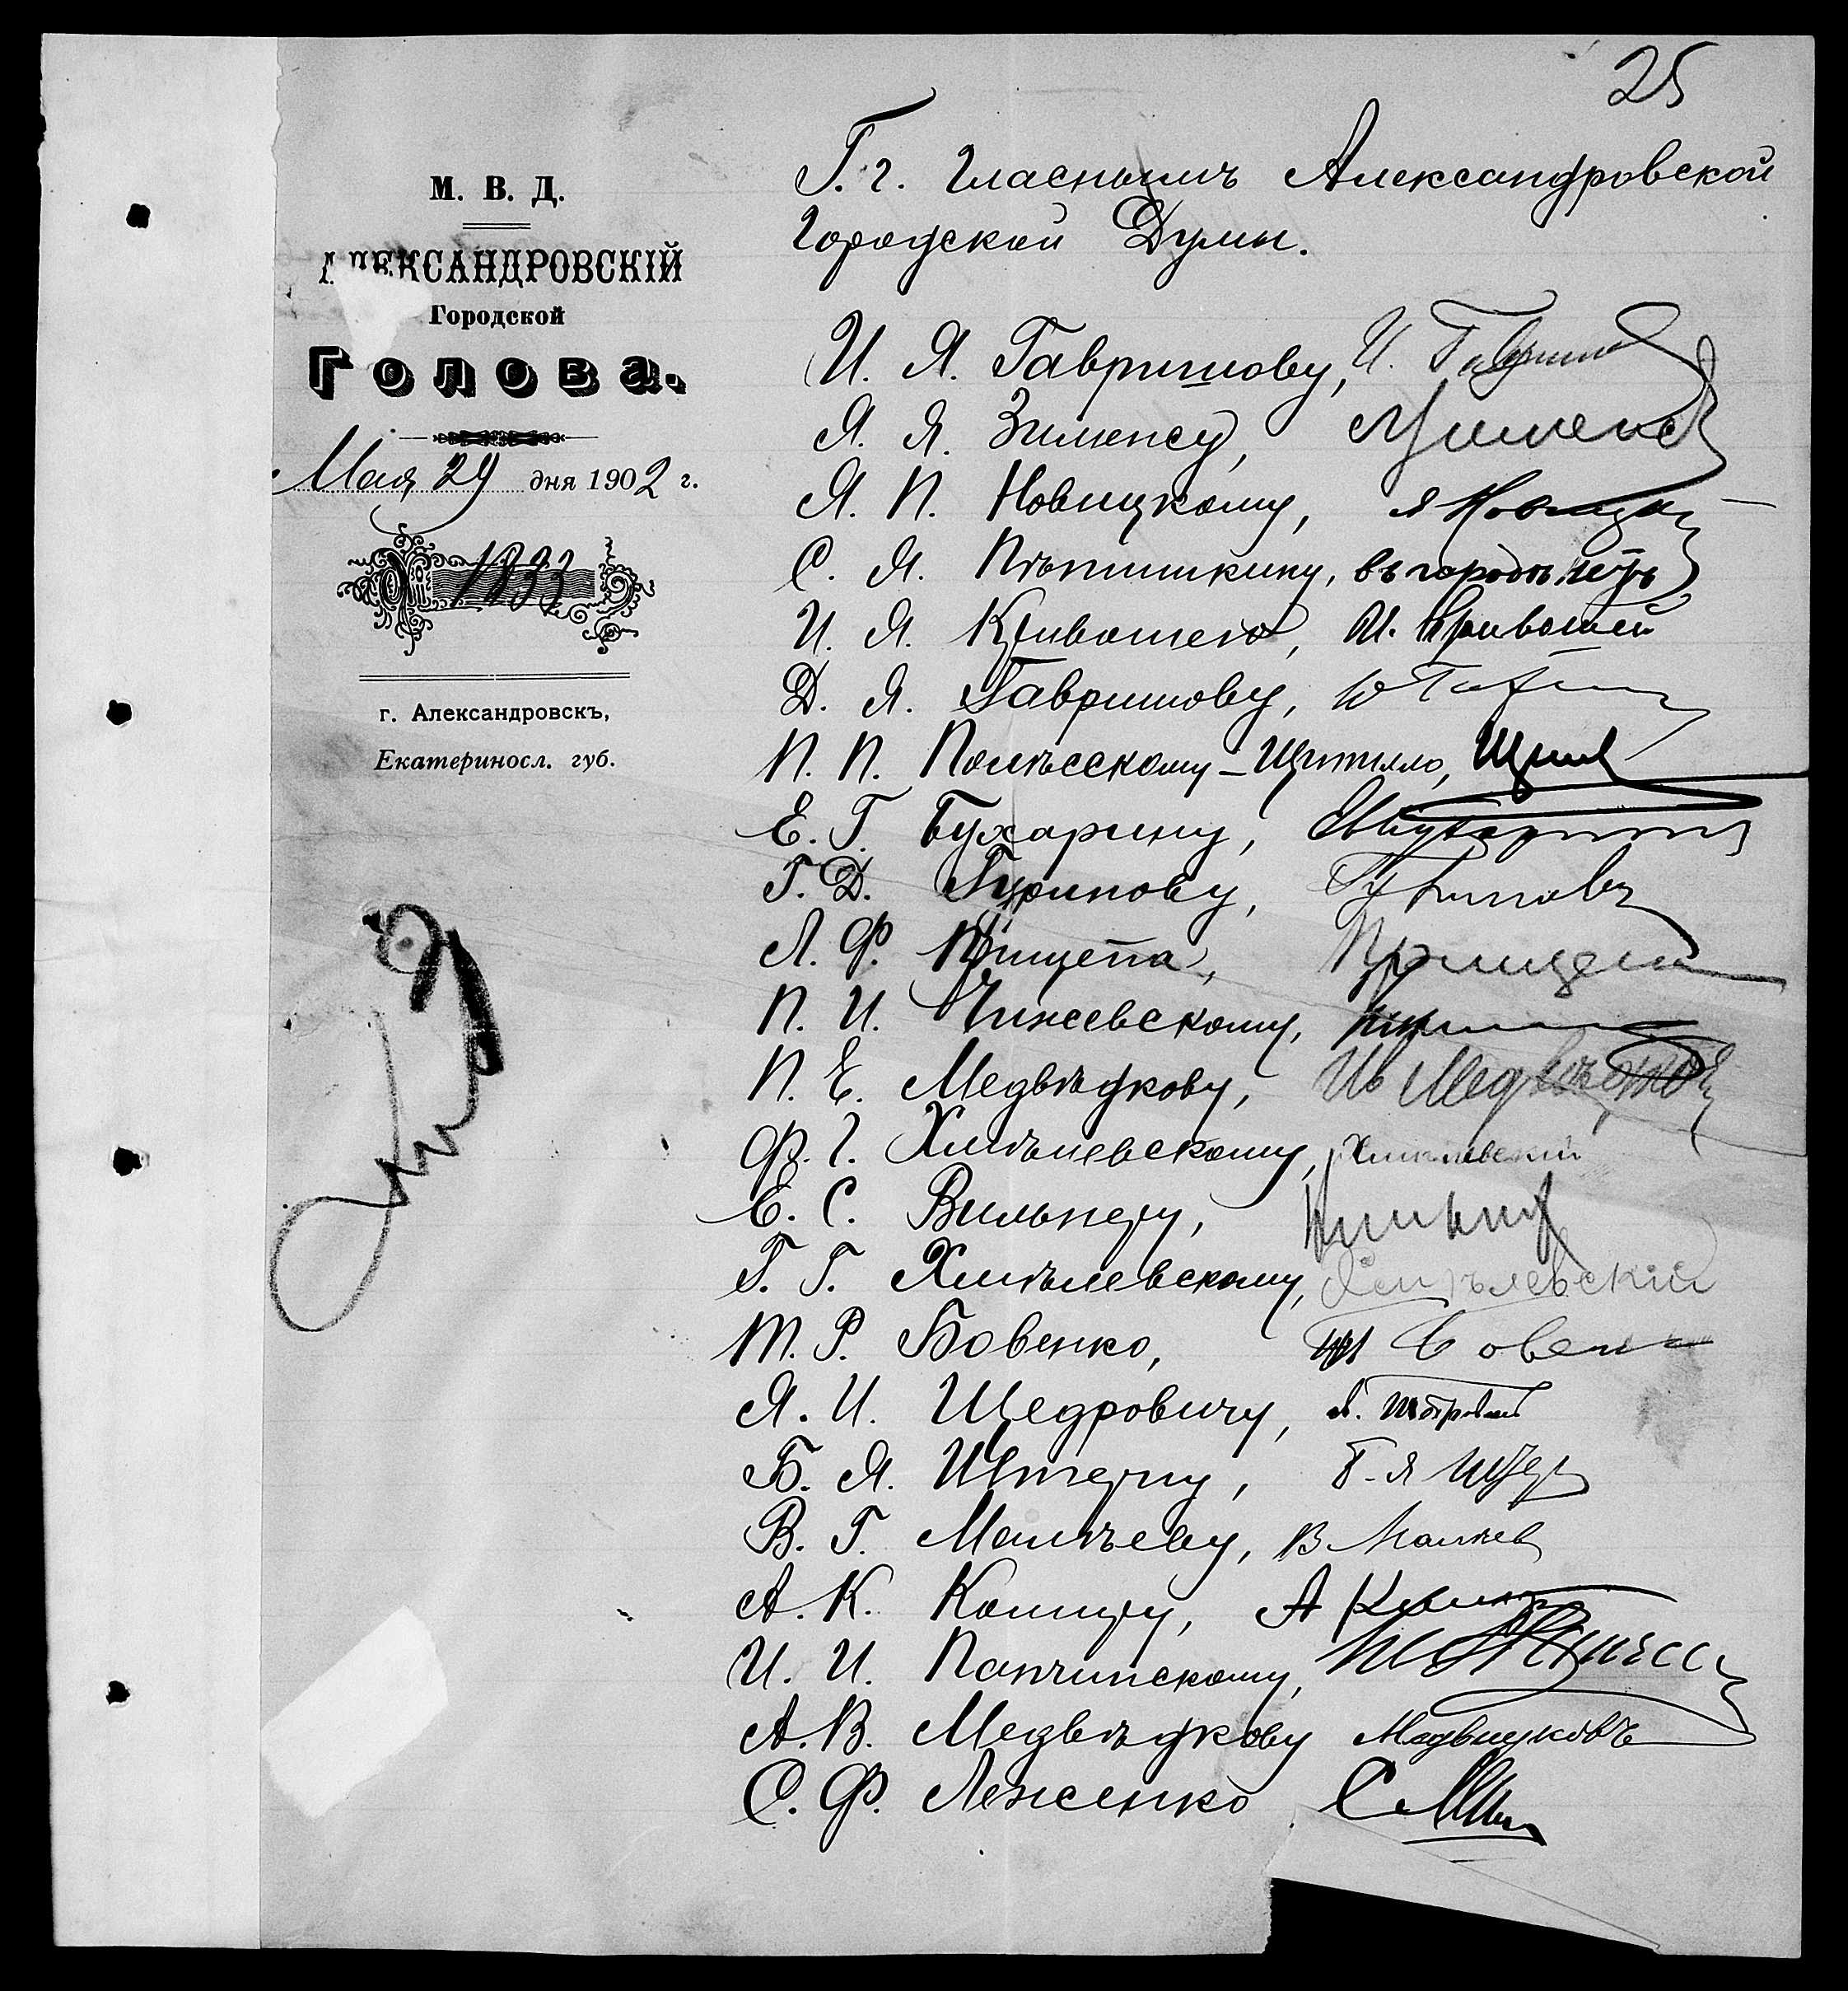 25
М. В. Д.
АЛЕКСАНДРОВСКІЙ
Городской
Голова.
Мая 29 дня 1902 г.
№ 1833
г. Александровскъ,
Екатериносл. губ.
Г. г. Гласнымъ Александровской
Городской Думы.
И. Я. Гавришову, И. Гавришов
Я. Я. Зименсу,
Я. П. Новицкому, Я Новицкій
С. Я. Пѣтишкину, въ городѣ нѣтъ
И. Я. Кривошею, И. Кривошей
Д. Я. Гавришову,
П. П. Полѣсскому-Щитилло,
Е. Г. Бухарину, Бухарин
Г. Д. Гуринову, Гуриновъ
Л. Ф. Прищепа, Прищепа
П. И. Чижевскому,
П. Е. Медвѣдкову, Медвѣдков
Ф. Г. Хмѣлевскому, Хмѣлевскій
Е. С. Вильнеру,
Г. Г. Хмѣлевскому, Хмѣлевскій
Т. Р. Бовенко, Бовенко
Я. И. Щедровичу,
Б. Я. Штерну, Б. Я Штерн
В. Г. Малѣеву, В Малѣев
А. К. Кошцу, А
И. И. Папчинскому,
А. В. Медвѣдкову Медвѣдковъ
С. Ф. Леженко